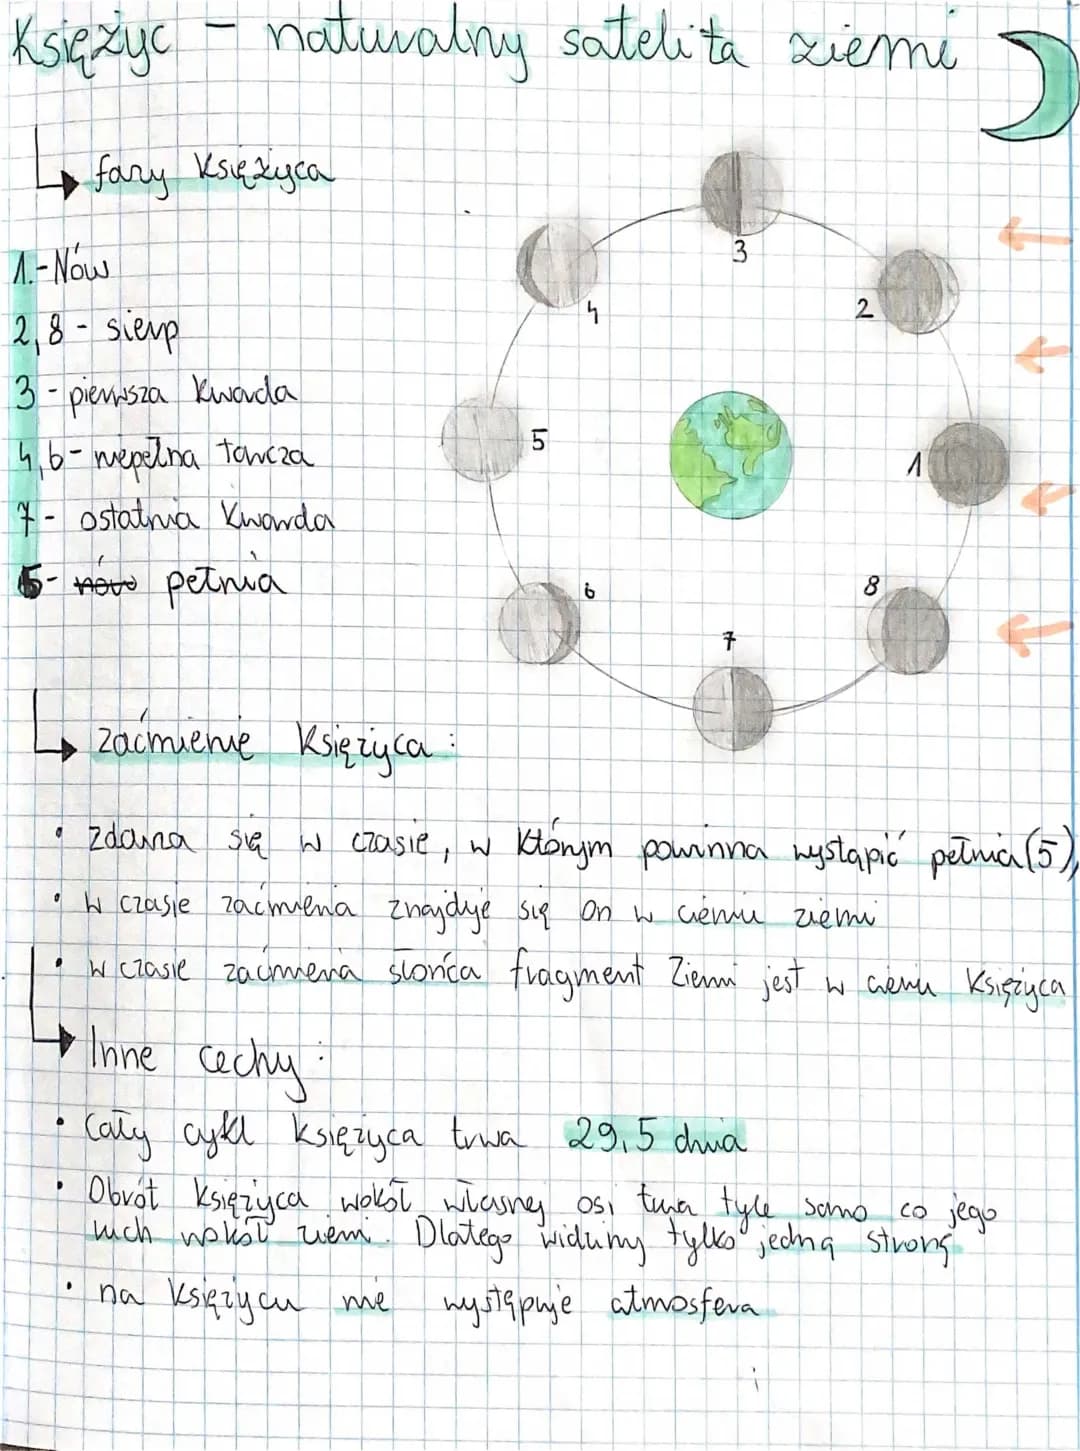 Księżyc - naturalny satelita ziemi
fazy Księżyca
1.-Nów
2,8 - sierp
3 - pierwsza kwada
4,6- niepełna tarcza
7- ostatnia kwarda
5- nów pełnia
3
4
2
5
1
6
8
7
zaćmienie Księżyca:
• zdarza się w czasie, w którym powinna wystąpić pełnia (5),
• w czasie zaćmienia znajduje się on w cieniu ziemi
• w czasie zaćmienia słońca fragment Ziemi jest w cieniu Księżyca
Inne cechy:
• Cały cykl księżyca trwa 29,5 dnia
• Obrót Księżyca wokół własnej osi trwa tyle samo co jego
ruch wokół ziemi. Dlatego widzimy tylko jedną stronę
• na Księżycu nie występuje atmosfera